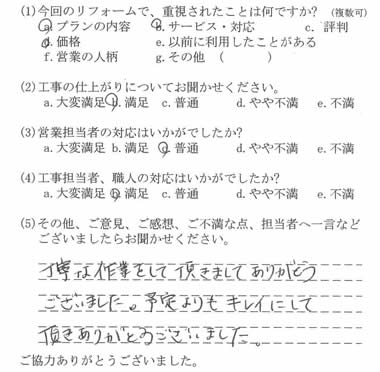 (1)今回のリフォームで、重視されたことは何ですか?（複数可）
a.プランの内容 b.サービス・対応 c.評判
d.価格 e.以前に利用したことがある
f.営業の人柄 g.その他 （ ）
(2)工事の仕上がりについてお聞かせください。
a.大変満足 b.満足 c.普通 d.やや不満 e.不満
(3)営業担当者の対応はいかがでしたか?
a.大変満足 b.満足 c.普通 d.やや不満 e.不満
(4)工事担当者、職人の対応はいかがでしたか?
a.大変満足 b.満足 c.普通 d.やや不満 e.不満
(5)その他、ご意見、ご感想、ご不満な点、担当者へ一言など
ございましたらお聞かせください。
丁寧な作業をして頂きまして ありがとう
ございました。予定よりも キレイにして
頂きありがとうございました。
ご協力ありがとうございました。